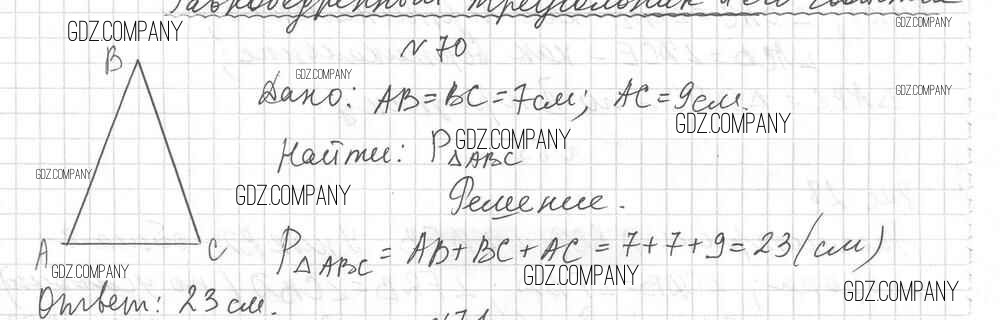 Равнобедренный треугольник и его свойства
GDZ.COMPANY
GDZ.COMPANY
№ 70
B
GDZ.COMPANY
GDZ.COMPANY
Дано: AB = BC = 7 см; AC = 9 см.
GDZ.COMPANY
GDZ.COMPANY
Найти: P△ABC
GDZ.COMPANY
GDZ.COMPANY
Решение.
A C
P△ABC = AB + BC + AC = 7 + 7 + 9 = 23 (см)
GDZ.COMPANY
GDZ.COMPANY
GDZ.COMPANY
Ответ: 23 см.